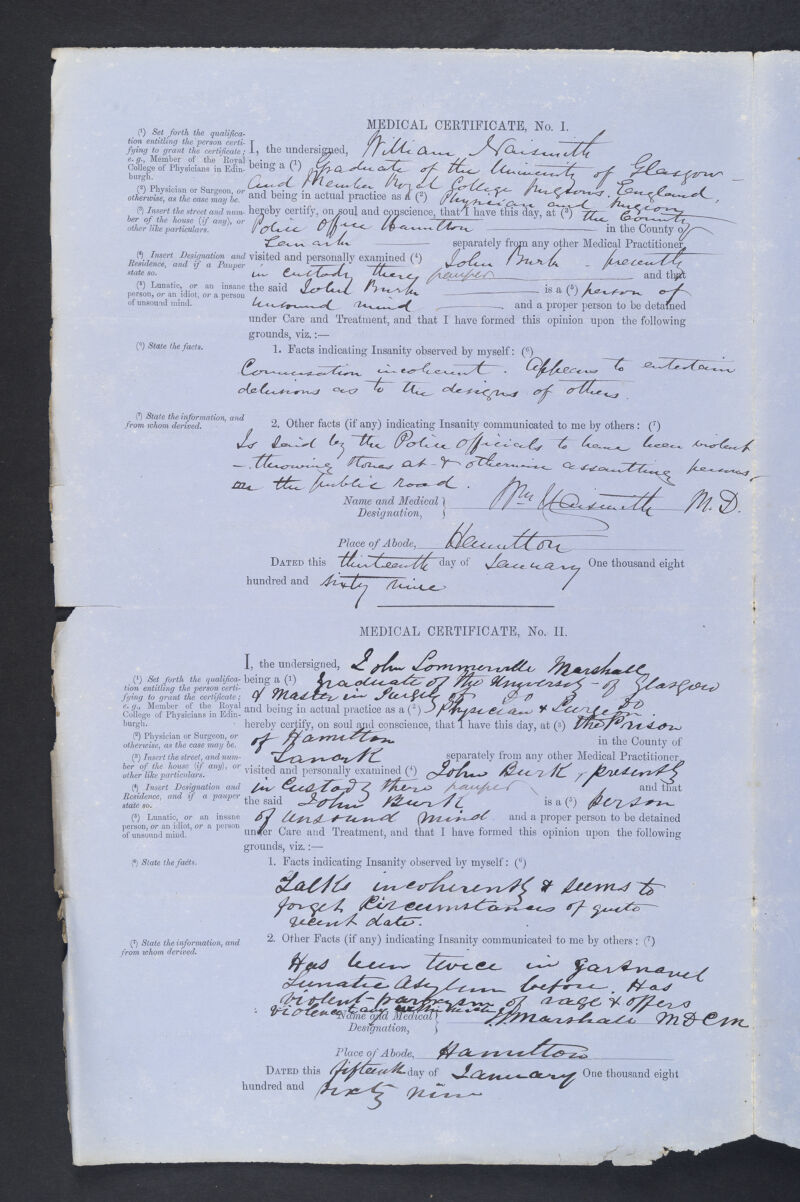 MEDICAL CERTIFICATE, No. I.
(1) Set forth the qualifica-
tion entitling the person certi-
fying to grant the certificate;
e.g., Member of the Royal
College of Physicians in Edin-
burgh.
(2) Physician or Surgeon, or
otherwise, as the case may be.
(3) Insert the street and num-
ber of the house (if any), or
other like particulars.
(4) Insert Designation and
Residence, and if a Pauper
state so.
(5) Lunatic, or an insane
person, or an idiot, or a person
of unsound mind.
I, the undersigned, William Naismith
being a (1) Graduate of the University of Glasgow
and Member Royal College Surgeons, England,
and being in actual practice as a (2) Physician and Surgeon
hereby certify, on soul and conscience, that I have this day, at (3) the County
Police Office Hamilton in the County of
Lanark separately from any other Medical Practitioner,
visited and personally examined (4) John Burk - presently
in custody there pauper and that
the said John Burk is a (5) person of
unsound mind and a proper person to be detained
under Care and Treatment, and that I have formed this opinion upon the following
grounds, viz.:—
(6) State the facts.
1. Facts indicating Insanity observed by myself: (6)
Conversation incoherent. Appears to entertain
delusions as to the designs of others.
(7) State the information, and
from whom derived.
2. Other facts (if any) indicating Insanity communicated to me by others: (7)
Is said by the Police Officials to have been violent
- throwing stones at & otherwise assaulting persons
on the public road.
Name and Medical
Designation, } Wm Naismith M.D.
Place of Abode, Hamilton
DATED this thirteenth day of January One thousand eight
hundred and sixty nine
MEDICAL CERTIFICATE, No. II.
(1) Set forth the qualifica-
tion entitling the person certi-
fying to grant the certificate;
e.g., Member of the Royal
College of Physicians in Edin-
burgh.
(2) Physician or Surgeon, or
otherwise, as the case may be.
(3) Insert the street, and num-
ber of the house (if any), or
other like particulars.
(4) Insert Designation and
Residence, and if a pauper
state so.
(5) Lunatic, or an insane
person, or an idiot, or a person
of unsound mind.
I, the undersigned, John Sommerville Marshall
being a (1) graduate of the University of Glasgow
& Master in Surgery of Do Do
and being in actual practice as a (2) Physician & Surgeon
hereby certify, on soul and conscience, that I have this day, at (3) the Prison
of Hamilton in the County of
Lanark separately from any other Medical Practitioner
visited and personally examined (4) John Burk, presently
in custody there pauper and that
the said John Burk is a (5) person
of unsound mind and a proper person to be detained
under Care and Treatment, and that I have formed this opinion upon the following
grounds, viz.:—
(6) State the facts.
1. Facts indicating Insanity observed by myself: (6)
Talks incoherently & seems to
forget circumstances of quite
recent date.
(7) State the information, and
from whom derived.
2. Other Facts (if any) indicating Insanity communicated to me by others: (7)
Has been twice in Gartnavel
Lunatic Asylum before. Has
violent paroxysm of rage & offers
violence to any
Name and Medical
Designation, } J S Marshall MD CM
Place of Abode, Hamilton
DATED this fifteenth day of January One thousand eight
hundred and sixty nine